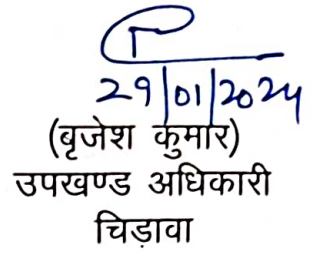 29/01/2024
(बृजेश कुमार)
उपखण्ड अधिकारी
चिड़ावा